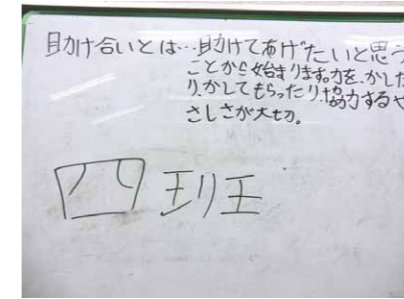 助け合いとは…助けてあげたいと思う
ことから始まります。力を、かした
り、かしてもらったり、協力するや
さしさが大切。
四班